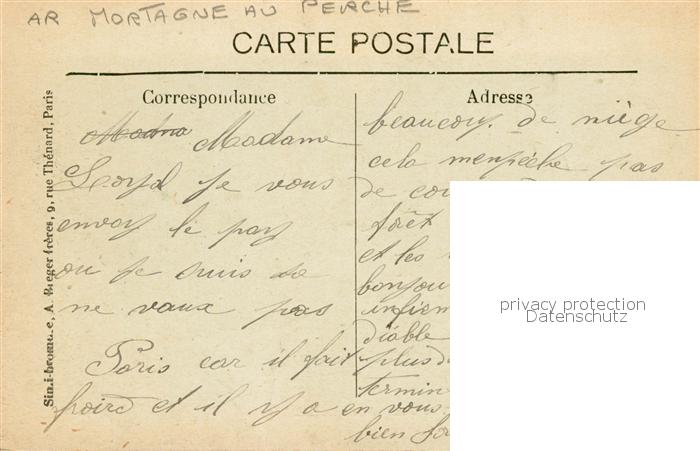 AR MORTAGNE AU PERCHE
CARTE POSTALE
Correspondance
Adresse
Simili-bromure, A. Breger frères, 9, rue Thénard, Paris
Madame
je vous
envoy le pay
ou je suis sa
ne vaux pas
Paris car il fait
froird et il y a en vous
beaucoup de niège
cela menpéche pas
de
forêt
et les
diable
plus
bien
privacy protection
Datenschutz